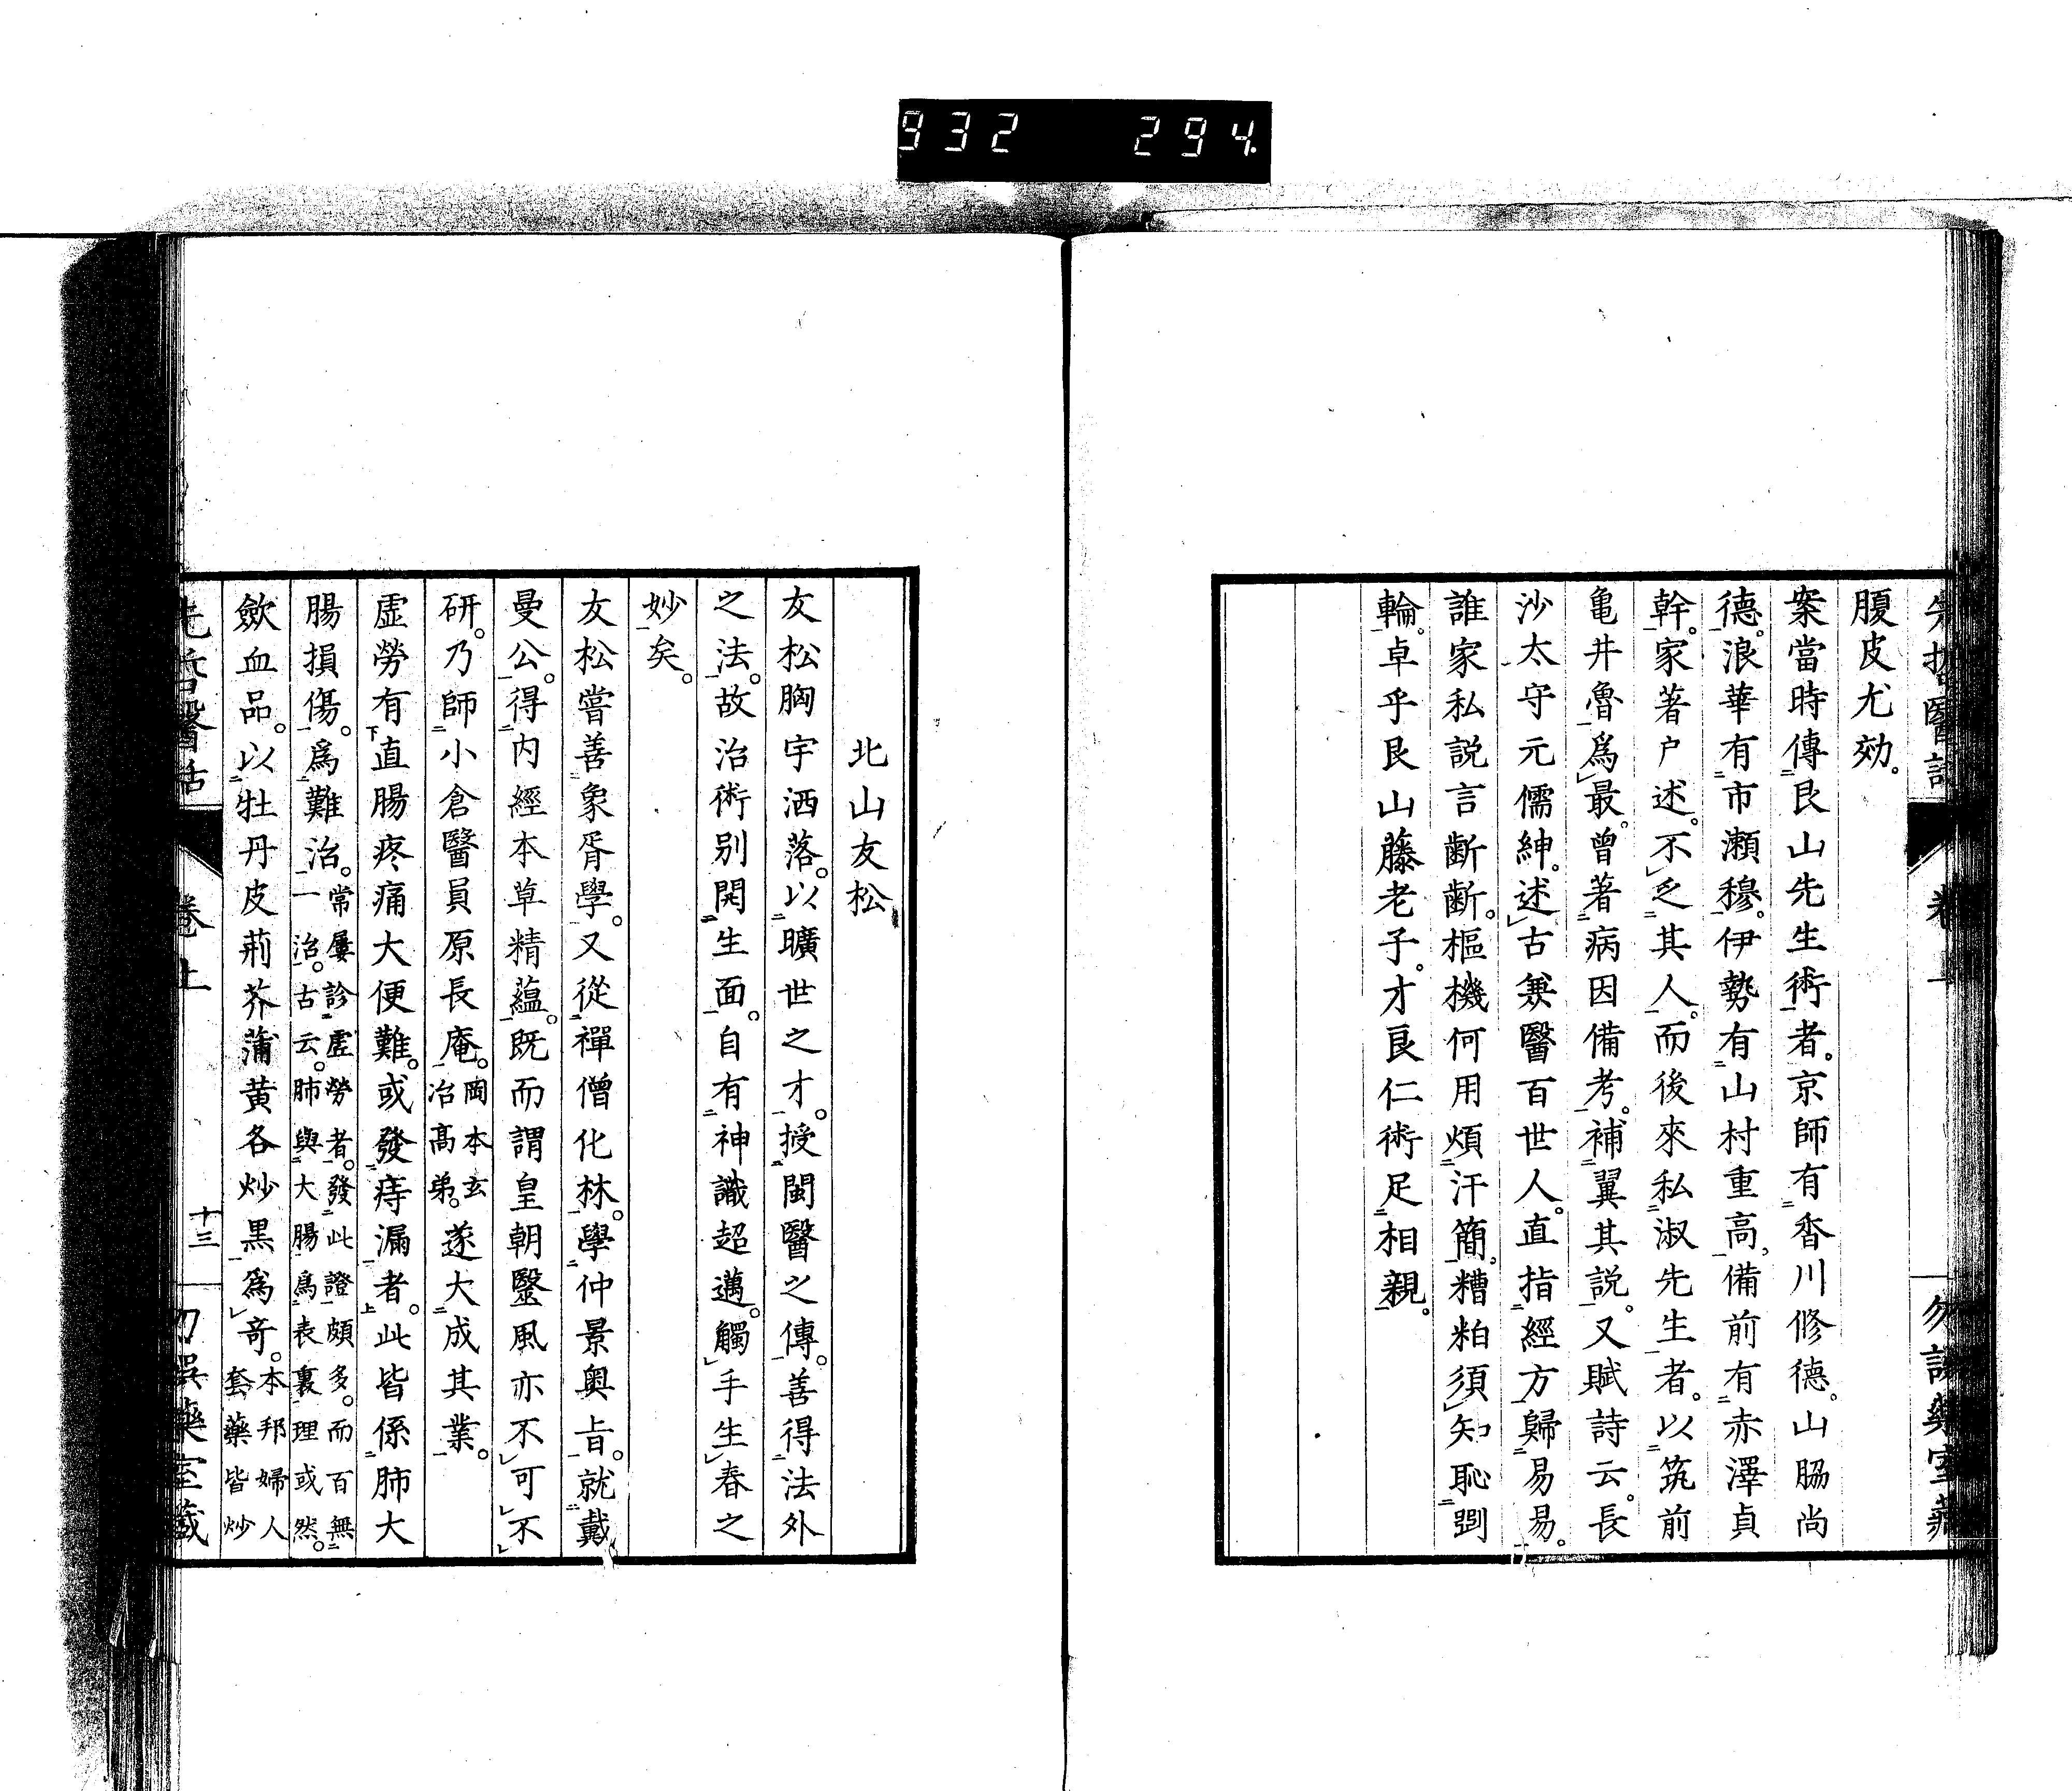 932 294
腹皮尤効。
案當時傳艮山先生術者。京師有香川修德。山脇尚
德。浪華有市瀬穆。伊勢有山村重高。備前有赤澤貞
幹。家著戸述。不乏其人。而後來私淑先生者。以筑前
亀井魯爲最。曾著病因備考。補翼其説。又賦詩云。長
沙太守元儒紳。述古兼醫百世人。直指經方歸易易。
誰家私説言齗齗。樞機何用煩汗簡。糟粕須知恥斲
輪。卓乎艮山藤老子。才良仁術足相親。
北山友松
友松胸宇洒落。以曠世之才。授閩醫之傳。善得法外
之法。故治術別開生面。自有神識超邁。觸手生春之
妙矣。
友松嘗善象胥學。又從禪僧化林。學仲景奥旨。就戴
曼公。得内經本草精蘊。既而謂皇朝醫風亦不可不
研。乃師小倉醫員原長庵。岡本玄冶高弟。遂大成其業。
虚勞有直腸疼痛大便難。或發痔漏者。此皆係肺大
腸損傷。爲難治。常屢診虚勞者。發此證頗多。而百無一治。古云。肺與大腸爲表裏。理或然。
歛血品。以牡丹皮荊芥蒲黄各炒黒爲竒。本邦婦人套藥皆炒
先哲醫話
卷上
十三
勿誤藥室藏